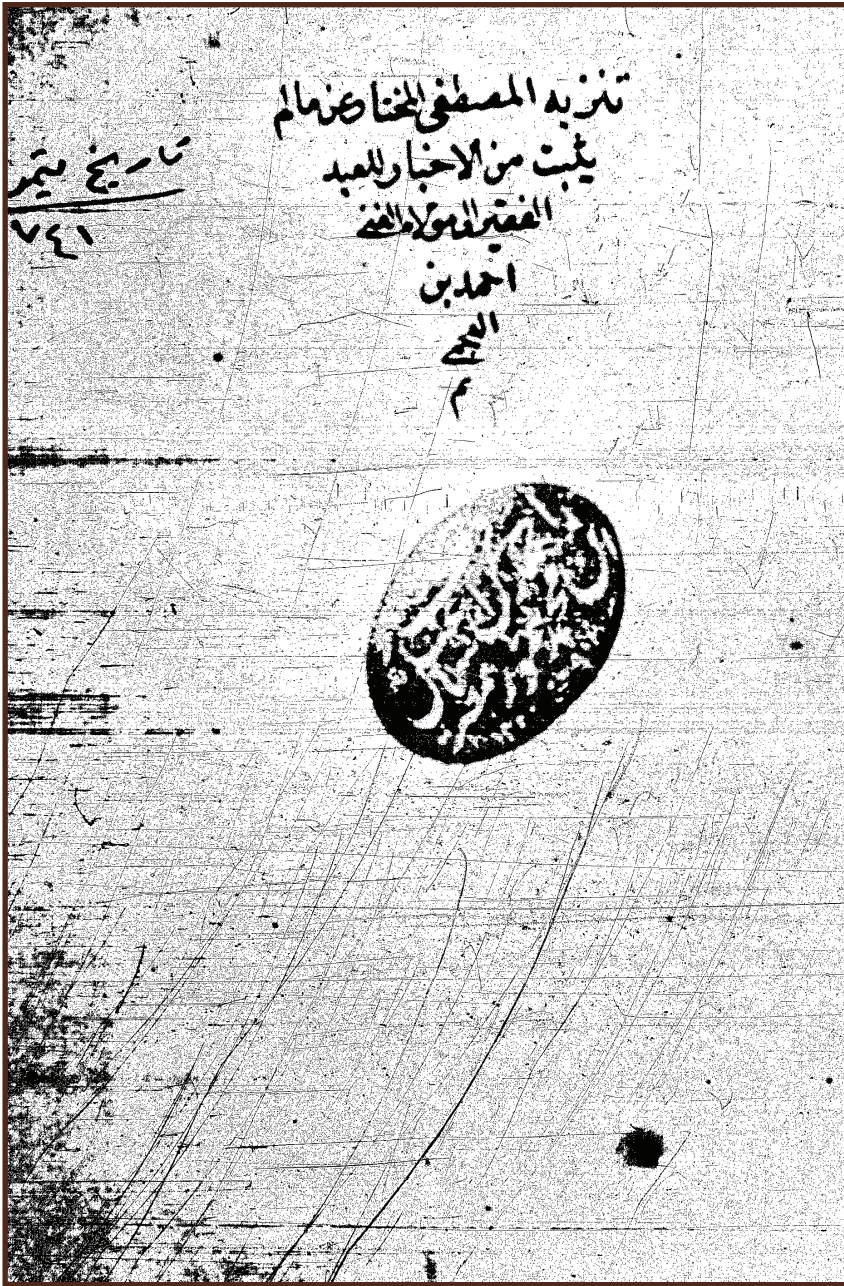 تنزيه المصطفى المختار عن ما لم
يثبت من الاخبار للعبد
الفقير الى مولاه الغني
احمد بن
العجمي
م
تاريخ تيمور
٧٤١